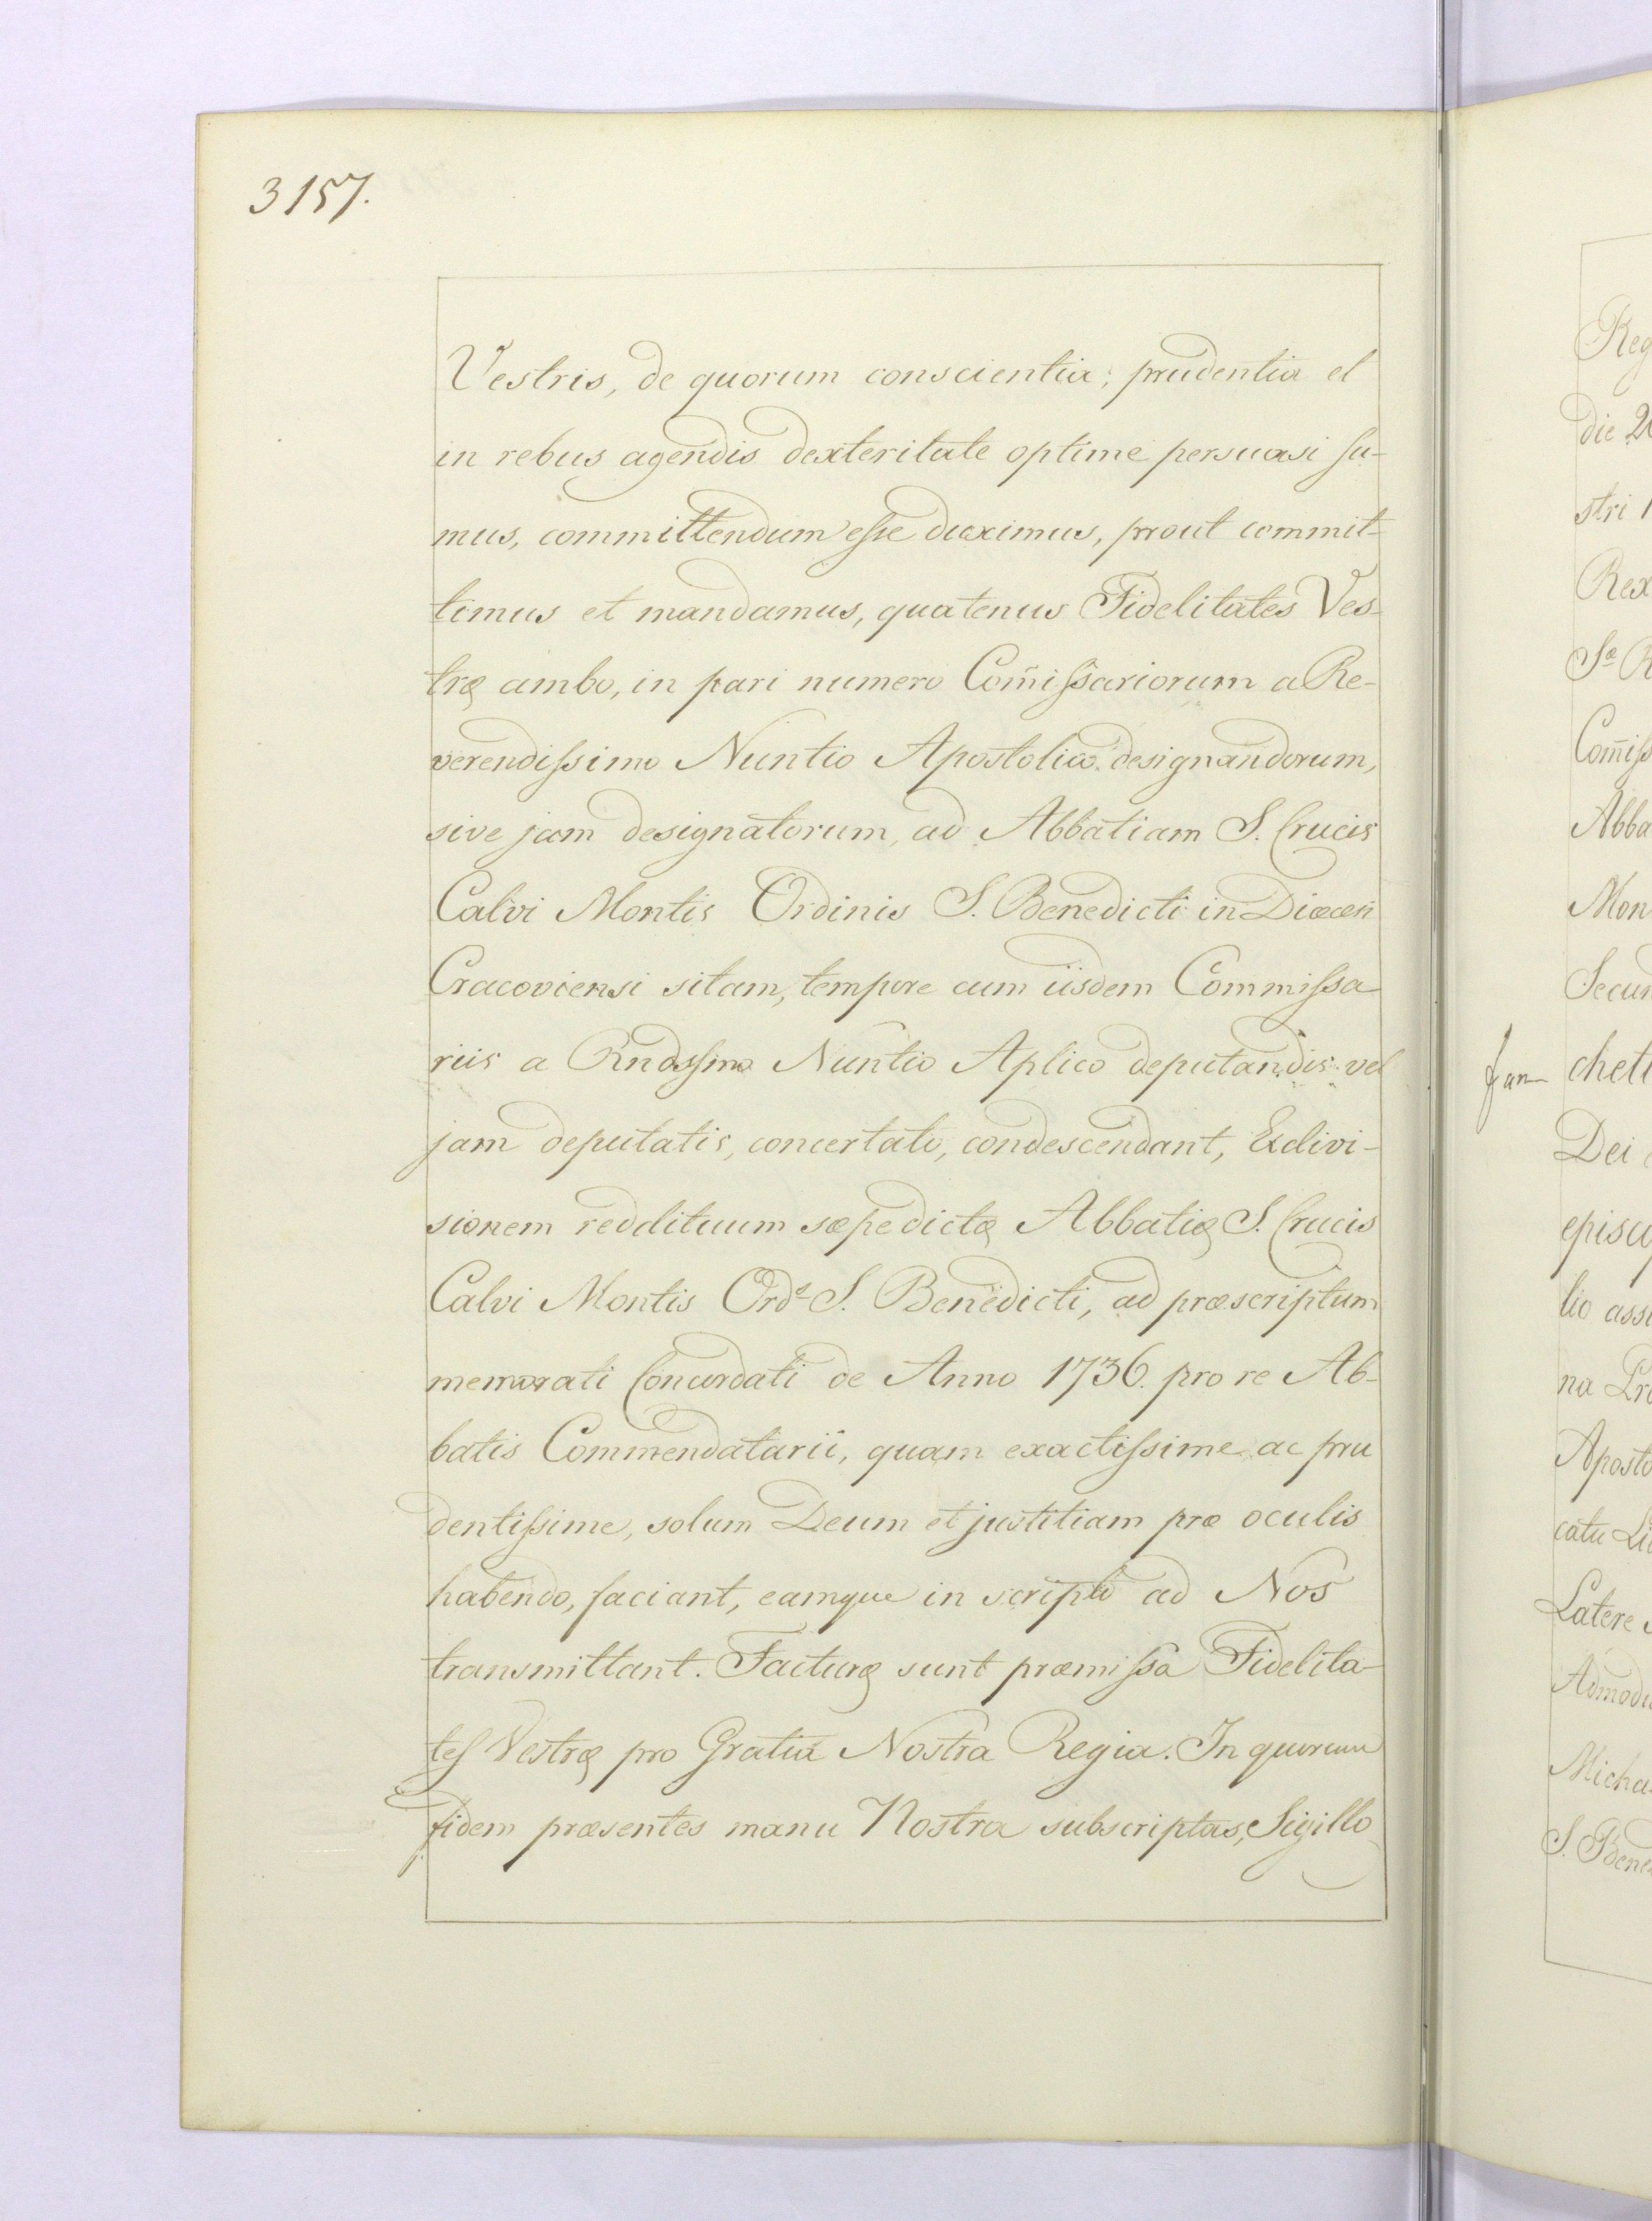 3157.
Vestris, de quorum conscientia, prudentia et
in rebus agendis dexteritate optime persuasi su-
mus, committendum esse duximus, prout commit-
timus et mandamus, quatenus Fidelitates Ves-
træ ambo, in pari numero Com̃issariorum a Re-
verendissimo Nuntio Apostolico designandorum,
sive jam designatorum, ad Abbatiam S. Crucis
Calvi Montis Ordinis S. Benedicti in Diœcesi
Cracoviensi sitam, tempore cum iisdem Commissa
riis a Rndssmo Nuntio Aplico deputandis vel
jam deputatis, concertato, condescendant, & divi-
sionem reddituum sæpedictæ Abbatiæ S. Crucis
Calvi Montis Ord: S. Benedicti, ad præscriptum
memorati Concordati de Anno 1736. pro re Ab-
batis Commendatarii, quam exactissime ac pru
dentissime, solum Deum et justitiam præ oculis
habendo, faciant, eamque in scripto ad Nos
transmittant. Facturæ sunt præmissa Fidelita-
tes Vestræ pro Gratia Nostra Regia. In quorum
fidem præsentes manu Nostra subscriptas, Sigillo
Reg
die 2
stri
Rex
Comiss
Abba
Mon
Secun
chett
Dei
episco
lio assi
na Pro
Aposto
catu
Latere
Admodu
Micha
S. Bene